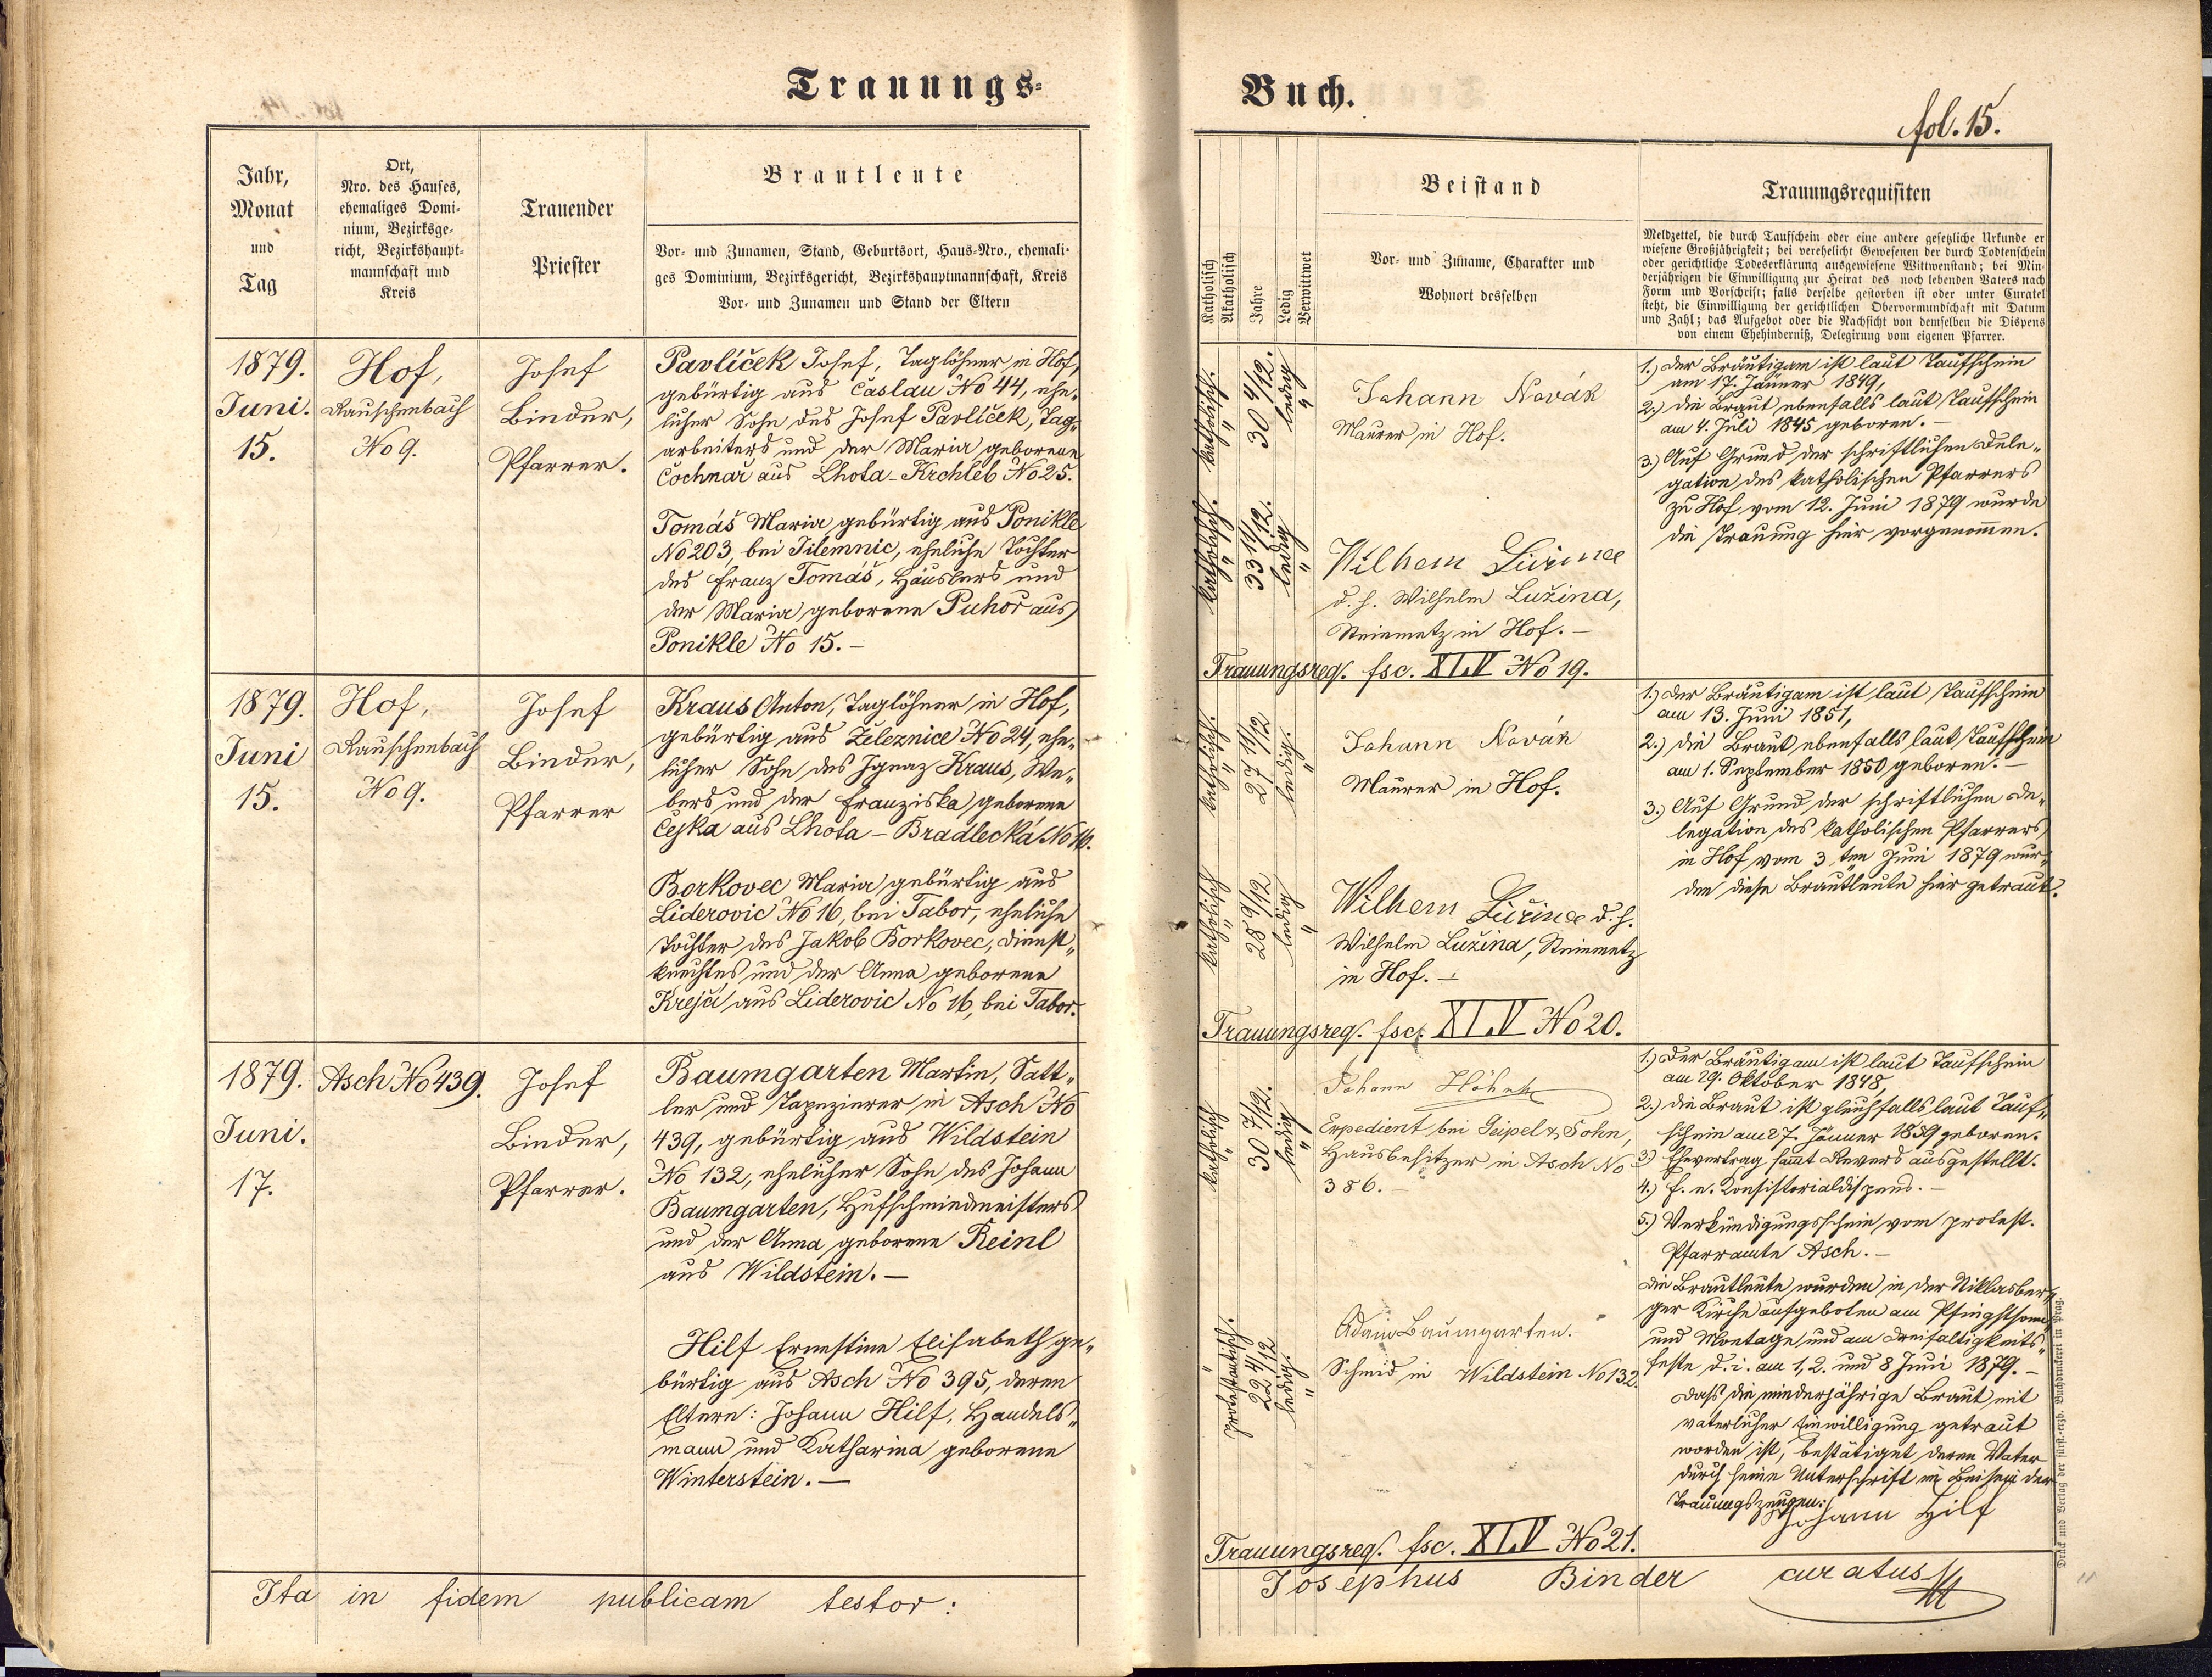 Trauungs-
Jahr,
Monat
und
Tag
Ort,
Nro. des Hauses,
ehemaliges Domi-
nium, Bezirksge-
richt, Bezirkshaupt-
mannschaft und
Kreis
Trauender
Priester
Brautleute
Vor- und Zunamen, Stand, Geburtsort, Haus-Nro., ehemali-
ges Dominium, Bezirksgericht, Bezirkshauptmannschaft, Kreis
Vor- und Zunamen und Stand der Eltern
1879.
Juni.
15.
Hof,
Rauschenbach
No 9.
Josef
Binder,
Pfarrer.
Pavlíček Josef, Taglöhner in Hof,
gebürtig aus Časlau No 44, ehe„
licher Sohn des Josef Pavlíček, Tag„
arbeiters und der Maria geborene
Cochnař aus Lhota-Krchleb No 25.
Tomáš Maria gebürtig aus Ponikle
No 203, bei Jilemnic, eheliche Tochter
des Franz Tomáš, Häuslers und
der Maria geborene Puhor aus
Ponikle No 15.-
1879.
Juni
15.
Hof,
Rauschenbach
No 9.
Josef
Binder,
Pfarrer
Kraus Anton, Taglöhner in Hof,
gebürtig aus Železnice No 24, ehe„
licher Sohn des Ignaz Kraus, We„
bers und der Franziska geborene
Čejka aus Lhota-Bradlecká No 16.
Borkovec Maria gebürtig aus
Liderovic No 16, bei Tabor, eheliche
Tochter des Jakob Borkovec, Dienst„
knechtes und der Anna geborene
Krejči aus Liderovic No 16, bei Tabor.
1879.
Juni.
17.
Asch No 439.
Josef
Binder,
Pfarrer.
Baumgarten Martin, Satt„
ler und Tapezierer in Asch No
439, gebürtig aus Wildstein
No 132, ehelicher Sohn des Johann
Baumgarten, Hufschmiedmeisters
und der Anna geborene Reinl
aus Wildstein.-
Hilf Ernestine Elisabeth ge„
bürtig aus Asch No 395, deren
Eltern: Johann Hilf, Handels„
mann und Katharina geborene
Winterstein.-
Ita in fidem publicam testor:
Buch.
fol. 15.
Katholisch
Akatholisch
Jahre
Ledig
Verwittwet
Beistand
Vor- und Zuname, Charakter und
Wohnort desselben
Trauungsrequisiten
Meldzettel, die durch Taufschein oder eine andere gesetzliche Urkunde er
wiesene Großjährigkeit; bei verehelicht Gewesenen der durch Todtenschein
oder gerichtliche Todeserklärung ausgewiesene Wittwenstand; bei Min-
derjährigen die Einwilligung zur Heirat des noch lebenden Vaters nach
Form und Vorschrift; falls derselbe gestorben ist oder unter Curatel
steht, die Einwilligung der gerichtlichen Obervormundschaft mit Datum
und Zahl; das Aufgebot oder die Nachsicht von demselben die Dispens
von einem Ehehinderniß, Delegirung vom eigenen Pfarrer.
katholisch.
"
30 4/12.
ledig
"
Johann Novák
Maurer in Hof.
katholisch.
"
33 11/12.
ledig
"
Wilhem
d. h. Wilhelm Lužina,
Steinmetz in Hof.-
1.) Der Bräutigam ist laut Taufschein
am 17. Jänner 1849,
2.) die Braut ebenfalls laut Taufschein
am 4. Juli 1845 geboren.-
3.) Auf Grund der schriftlichen Dele„
gation des katholischen Pfarrers
zu Hof vom 12. Juni 1879 wurde
die Trauung hier vorgenommen.
Trauungsreq. fsc. XLV No 19.
katholisch.
"
27 11/12
ledig.
"
Johann Novák
Maurer in Hof.
katholisch
"
28 9/12
ledig
"
Wilhem d. h.
Wilhelm Lužina, Steinmetz
in Hof.-
1.) Der Bräutigam ist laut Taufschein
am 13. Juni 1851,
2.) die Braut ebenfalls laut Taufschein
am 1. September 1850 geboren.-
3.) Auf Grund der schriftlichen De„
legation des katholischen Pfarrers
in Hof vom 3ten Juni 1879 wur„
den diese Brautleute hier getraut.
Trauungsreq. fsc. XLV No 20.
katholisch
"
30 7/12.
ledig
"
Johann
Expedient bei Geipel & Sohn,
Hausbesitzer in Asch No
386.-
protestantisch.
"
22 4/12
ledig.
"
Adam Baumgarten.
Schmid in Wildstein No 132.
1.) Der Bräutigam ist laut Taufschein
am 29. Oktober 1848,
2.) die Braut ist gleichfalls laut Tauf„
schein am 27. Jänner 1859 geboren.
3.) Ehevertrag sammt Revers ausgestellt.
4.) f. e. Konsistorialdispens.-
5.) Verkündigungsschein vom protest.
Pfarramte Asch.-
Die Brautleute wurden in der Niklasber„
ger Kirche aufgeboten am Pfingstsonn„
und Montage und am Dreifaltigkeits„
feste d. i. am 1, 2. und 8 Juni 1879.-
Daß die minderjährige Braut mit
väterlicher Einwilligung getraut
worden ist, bestätiget deren Vater
durch seine Unterschrift im Beisein der
Trauungszeugen:
Johann Hilf
Trauungsreq. fsc. XLV No 21.
Josephus Binder curatus
Druck und Verlag der fürst.-erzb. Buchdruckerei in Prag.